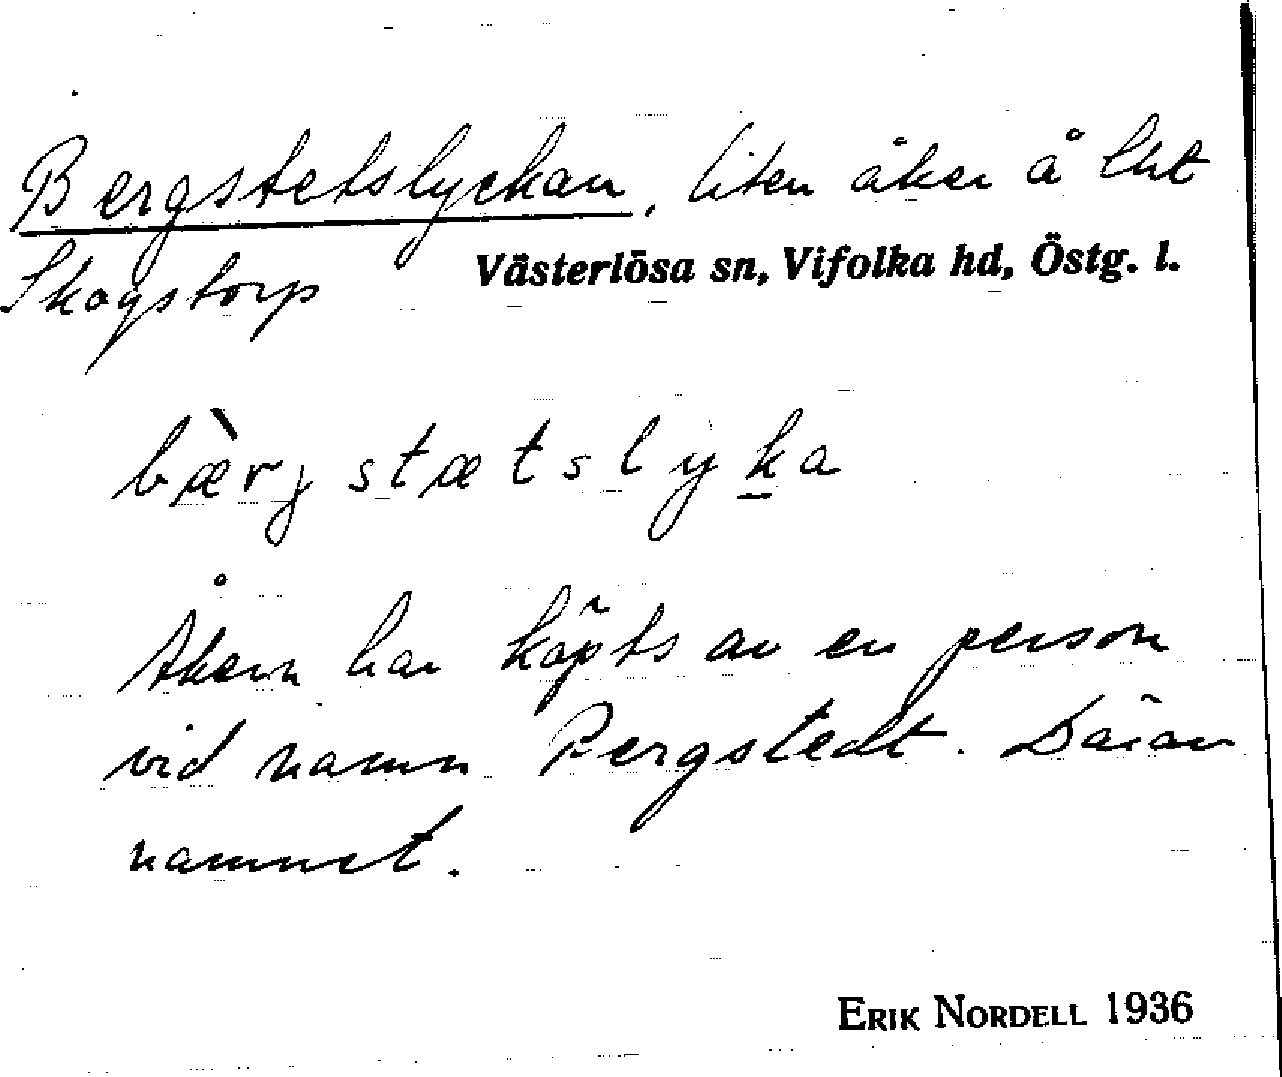 Bergstetslyckan, liten åker å Lht
Skogstorp
Västerlösa sn, Vifolka hd, Östg. l.
bæ̀rj stæt s l y k̲a
Åkern har köpts av en person
vid namn Bergstedt. Därav
namnet.
ERIK NORDELL 1936